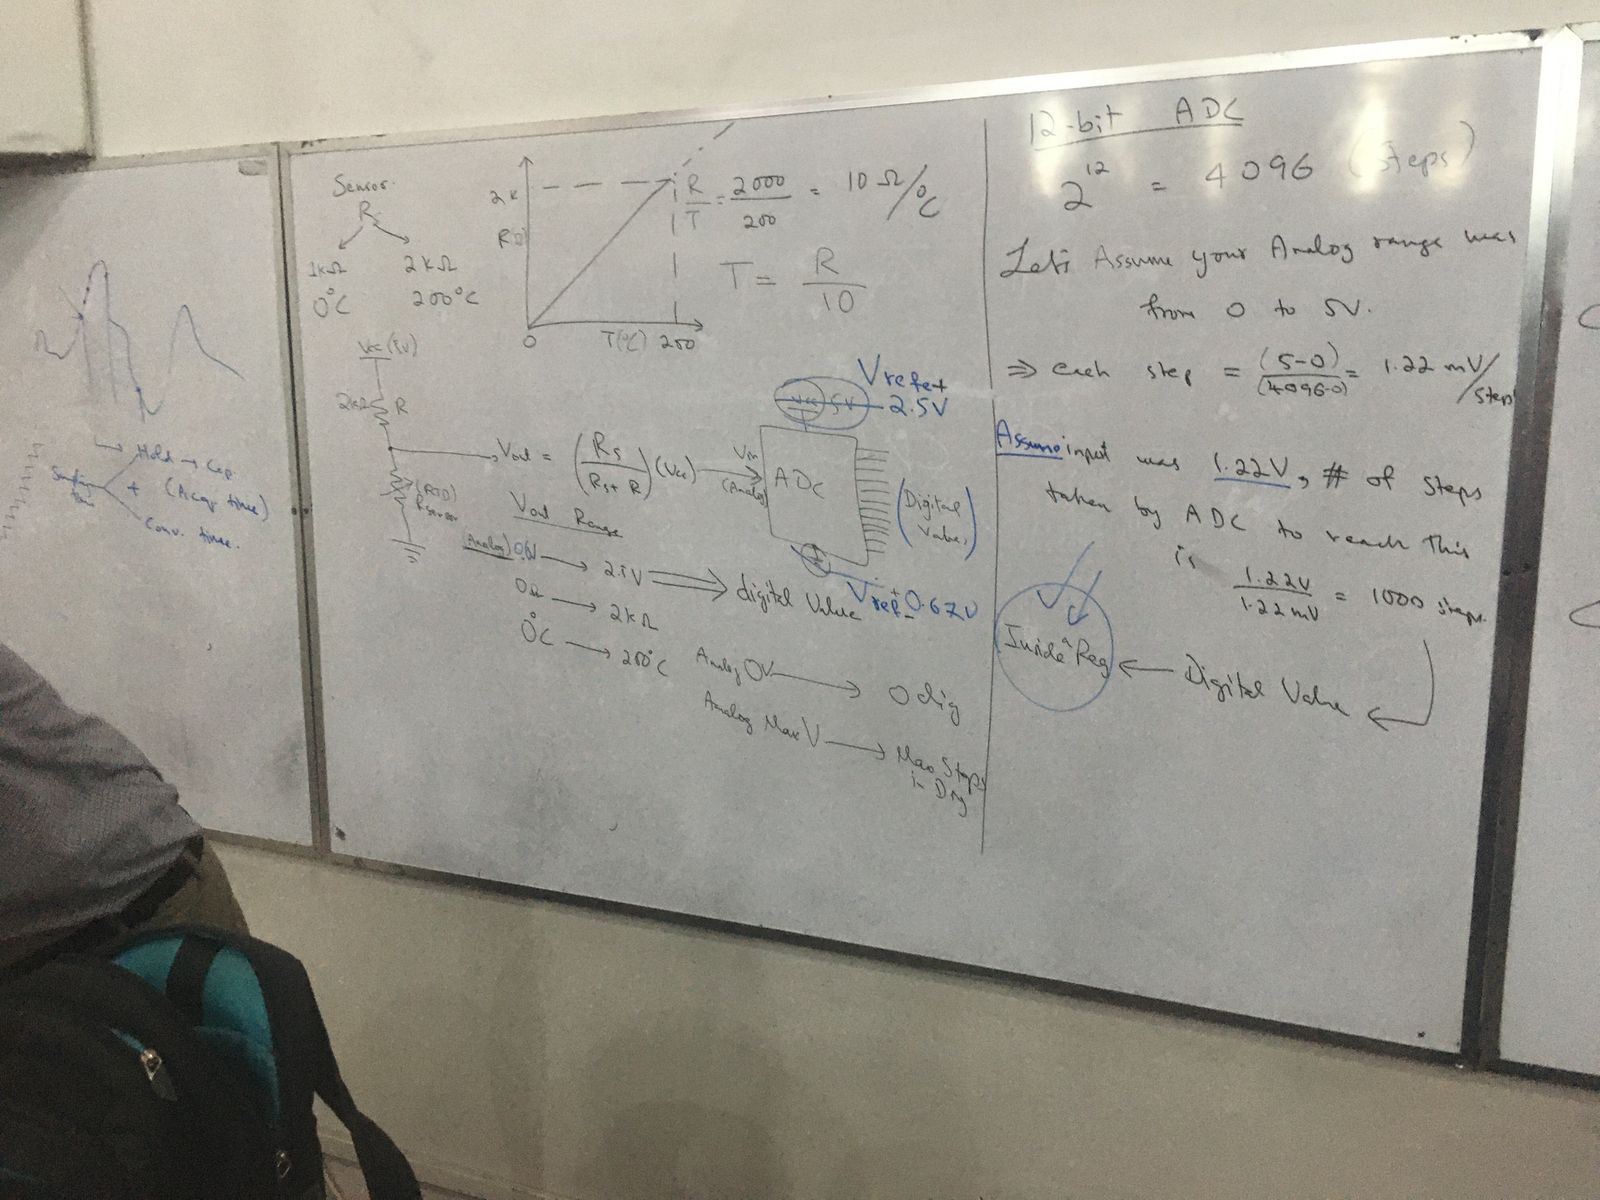 Hold → Cap.
+ (Acq. time)
Conv. time.
Sensor.
Rs
1kΩ 2kΩ
0°C 200°C
2k
R(Ω)
0 T(°C) 200
R/T = 2000/200 = 10 Ω/°C
T = R/10
Vcc (5V)
2kΩ R
(RTD)
Rsensor
Vout = (Rs/(Rs+R)) (Vcc)
Vin
(Analog)
ADC
Vref+
Vcc 5V 2.5V
(Digital
Value)
Vref- 0.67V
Vout Range
(Analog) 0V → 2.5V ⇒ digital Value
0Ω → 2kΩ
0°C → 200°C
Analog 0V → 0 dig
Analog Max V → Max Steps
in Dig
12-bit ADC
2^12 = 4096 (Steps)
Let's Assume your Analog range was
from 0 to 5V.
⇒ each step = (5-0)/(4096-0) = 1.22 mV/step
Assume input was 1.22V, # of steps
taken by ADC to reach this
is 1.22V/1.22mV = 1000 steps.
Inside a Reg ← Digital Value